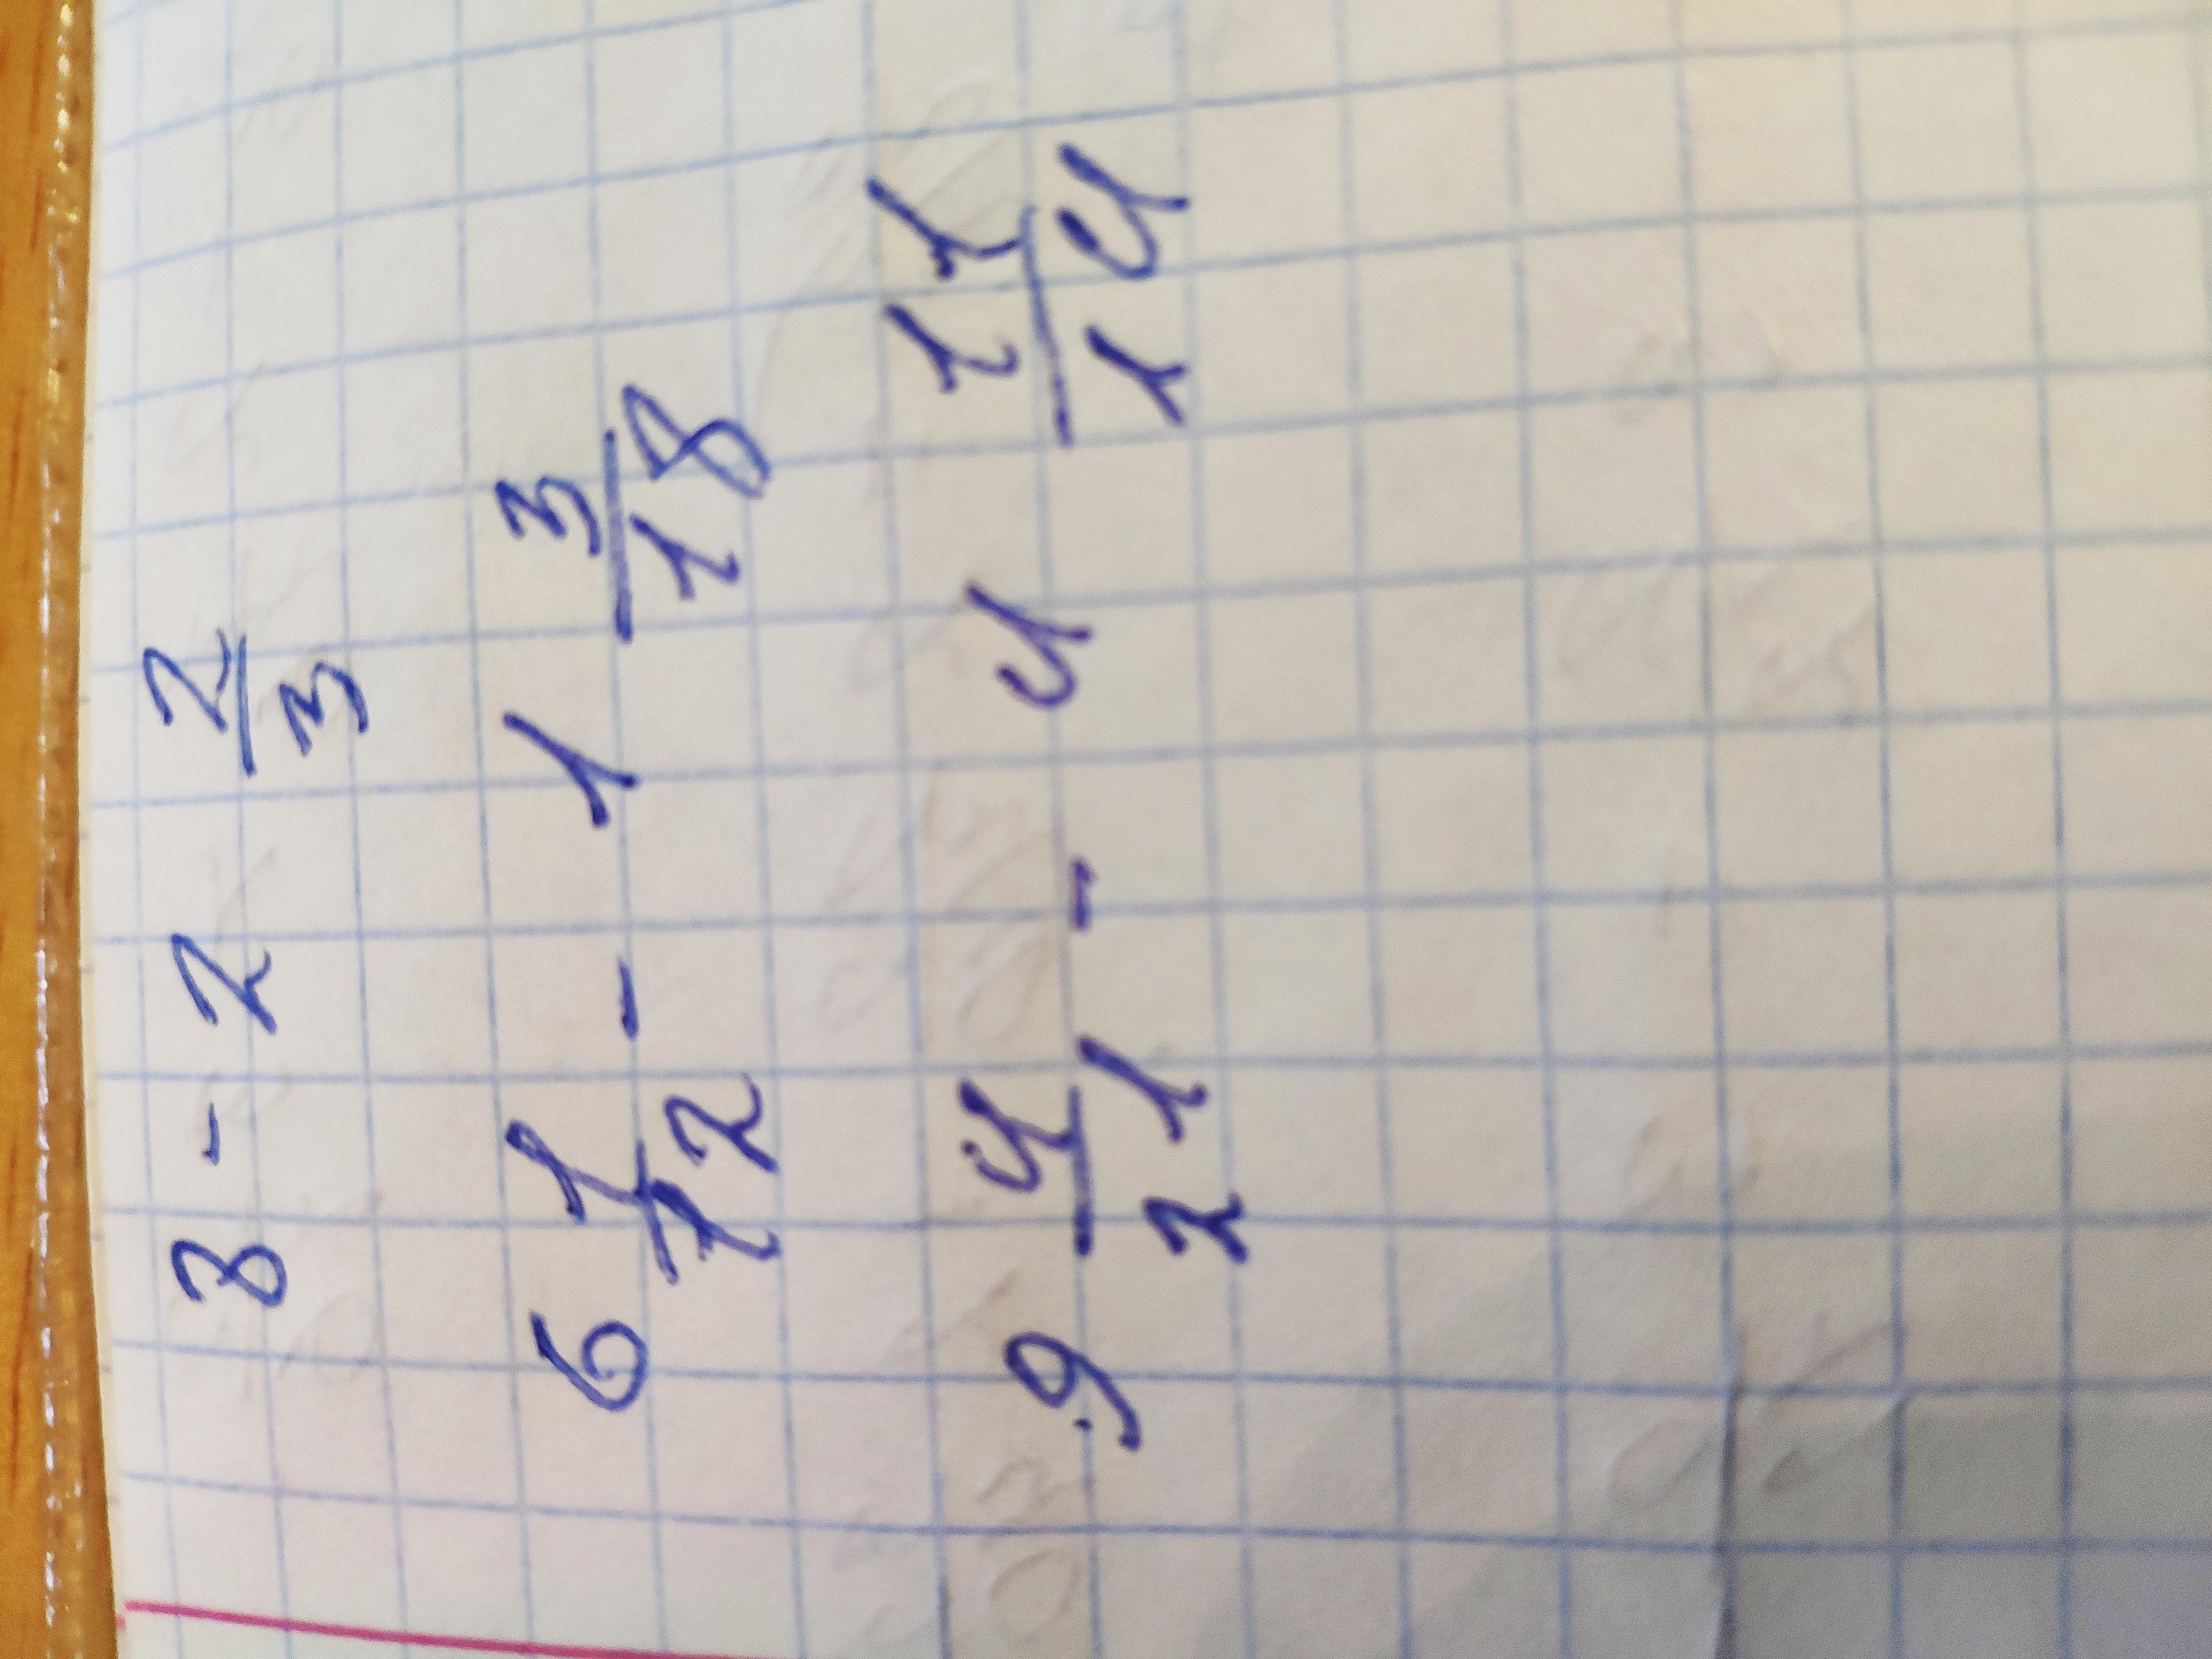 3 - 2 2/3
6 1/12 - 1 3/18
9 4/21 - 4 11/14